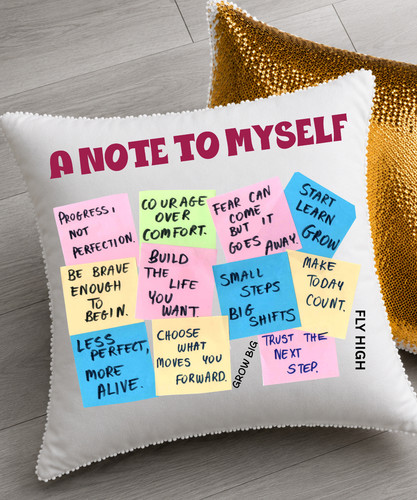 A NOTE TO MYSELF
PROGRESS,
NOT
PERFECTION.
COURAGE
OVER
COMFORT.
FEAR CAN
COME
BUT IT
GOES AWAY.
START
LEARN
GROW
BE BRAVE
ENOUGH
TO
BEGIN.
BUILD
THE
LIFE
YOU
WANT.
SMALL
STEPS
BIG
SHIFTS
MAKE
TODAY
COUNT.
LESS
PERFECT,
MORE
ALIVE.
CHOOSE
WHAT
MOVES YOU
FORWARD.
GROW BIG
TRUST THE
NEXT
STEP.
FLY HIGH